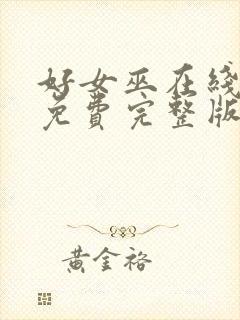 好女巫在线
免费完整版
黄金裕